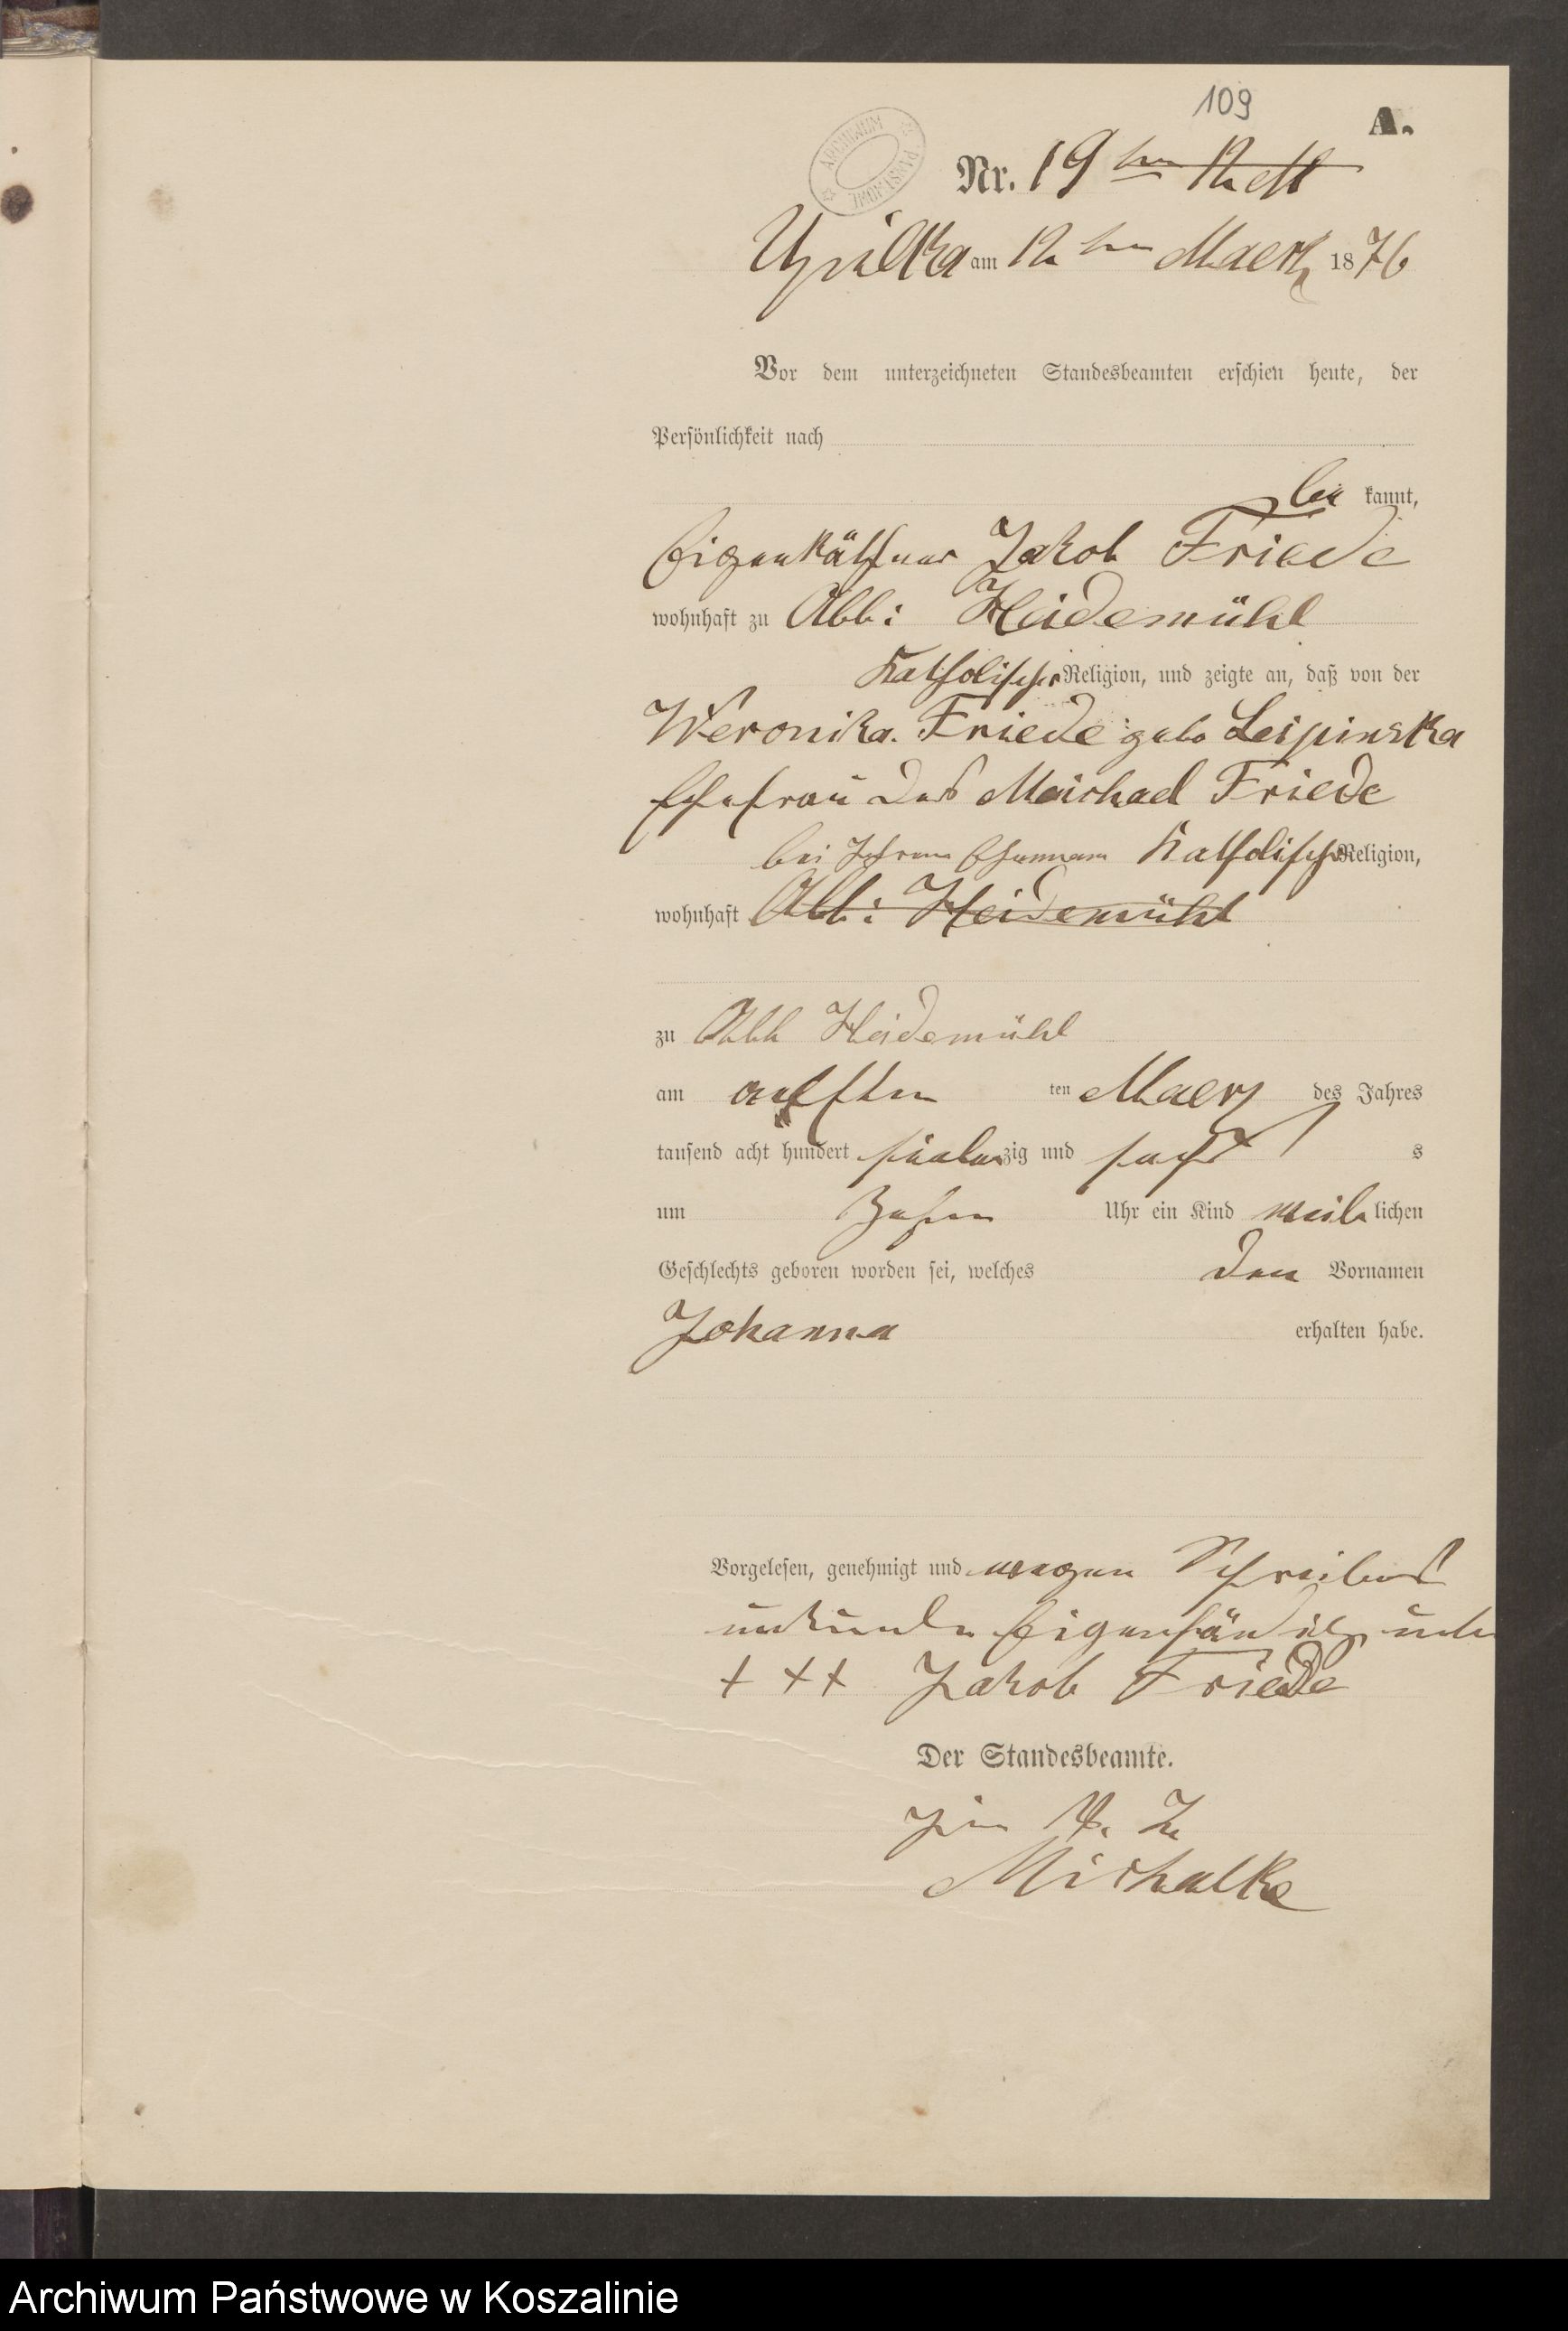 109
A.
ARCHIWUM PAŃSTWOWE
Nr. 19
am 12 ten Maerz 1876
Vor dem unterzeichneten Standesbeamten erschien heute, der
Persönlichkeit nach
be kannt,
Eigenkäthner Jakob Friede
wohnhaft zu Abb: Heidemühl
Katholischer Religion, und zeigte an, daß von der
Weronika Friede geb. Leipinska
Ehefrau des Maichael Friede
bei Ihrem Ehemann Katholischer Religion,
wohnhaft Abb: Heidemühl
zu Abb Heidemühl
am achten ten Maerz des Jahres
tausend acht hundert sieben zig und sechs s
um Zehn Uhr ein Kind weib lichen
Geschlechts geboren worden sei, welches den Vornamen
Johanna erhalten habe.
Vorgelesen, genehmigt und wegen Schreibens
unkunde Eigenhändig unter
+ + + Jakob Friede
Der Standesbeamte.
Michalke
Archiwum Państwowe w Koszalinie